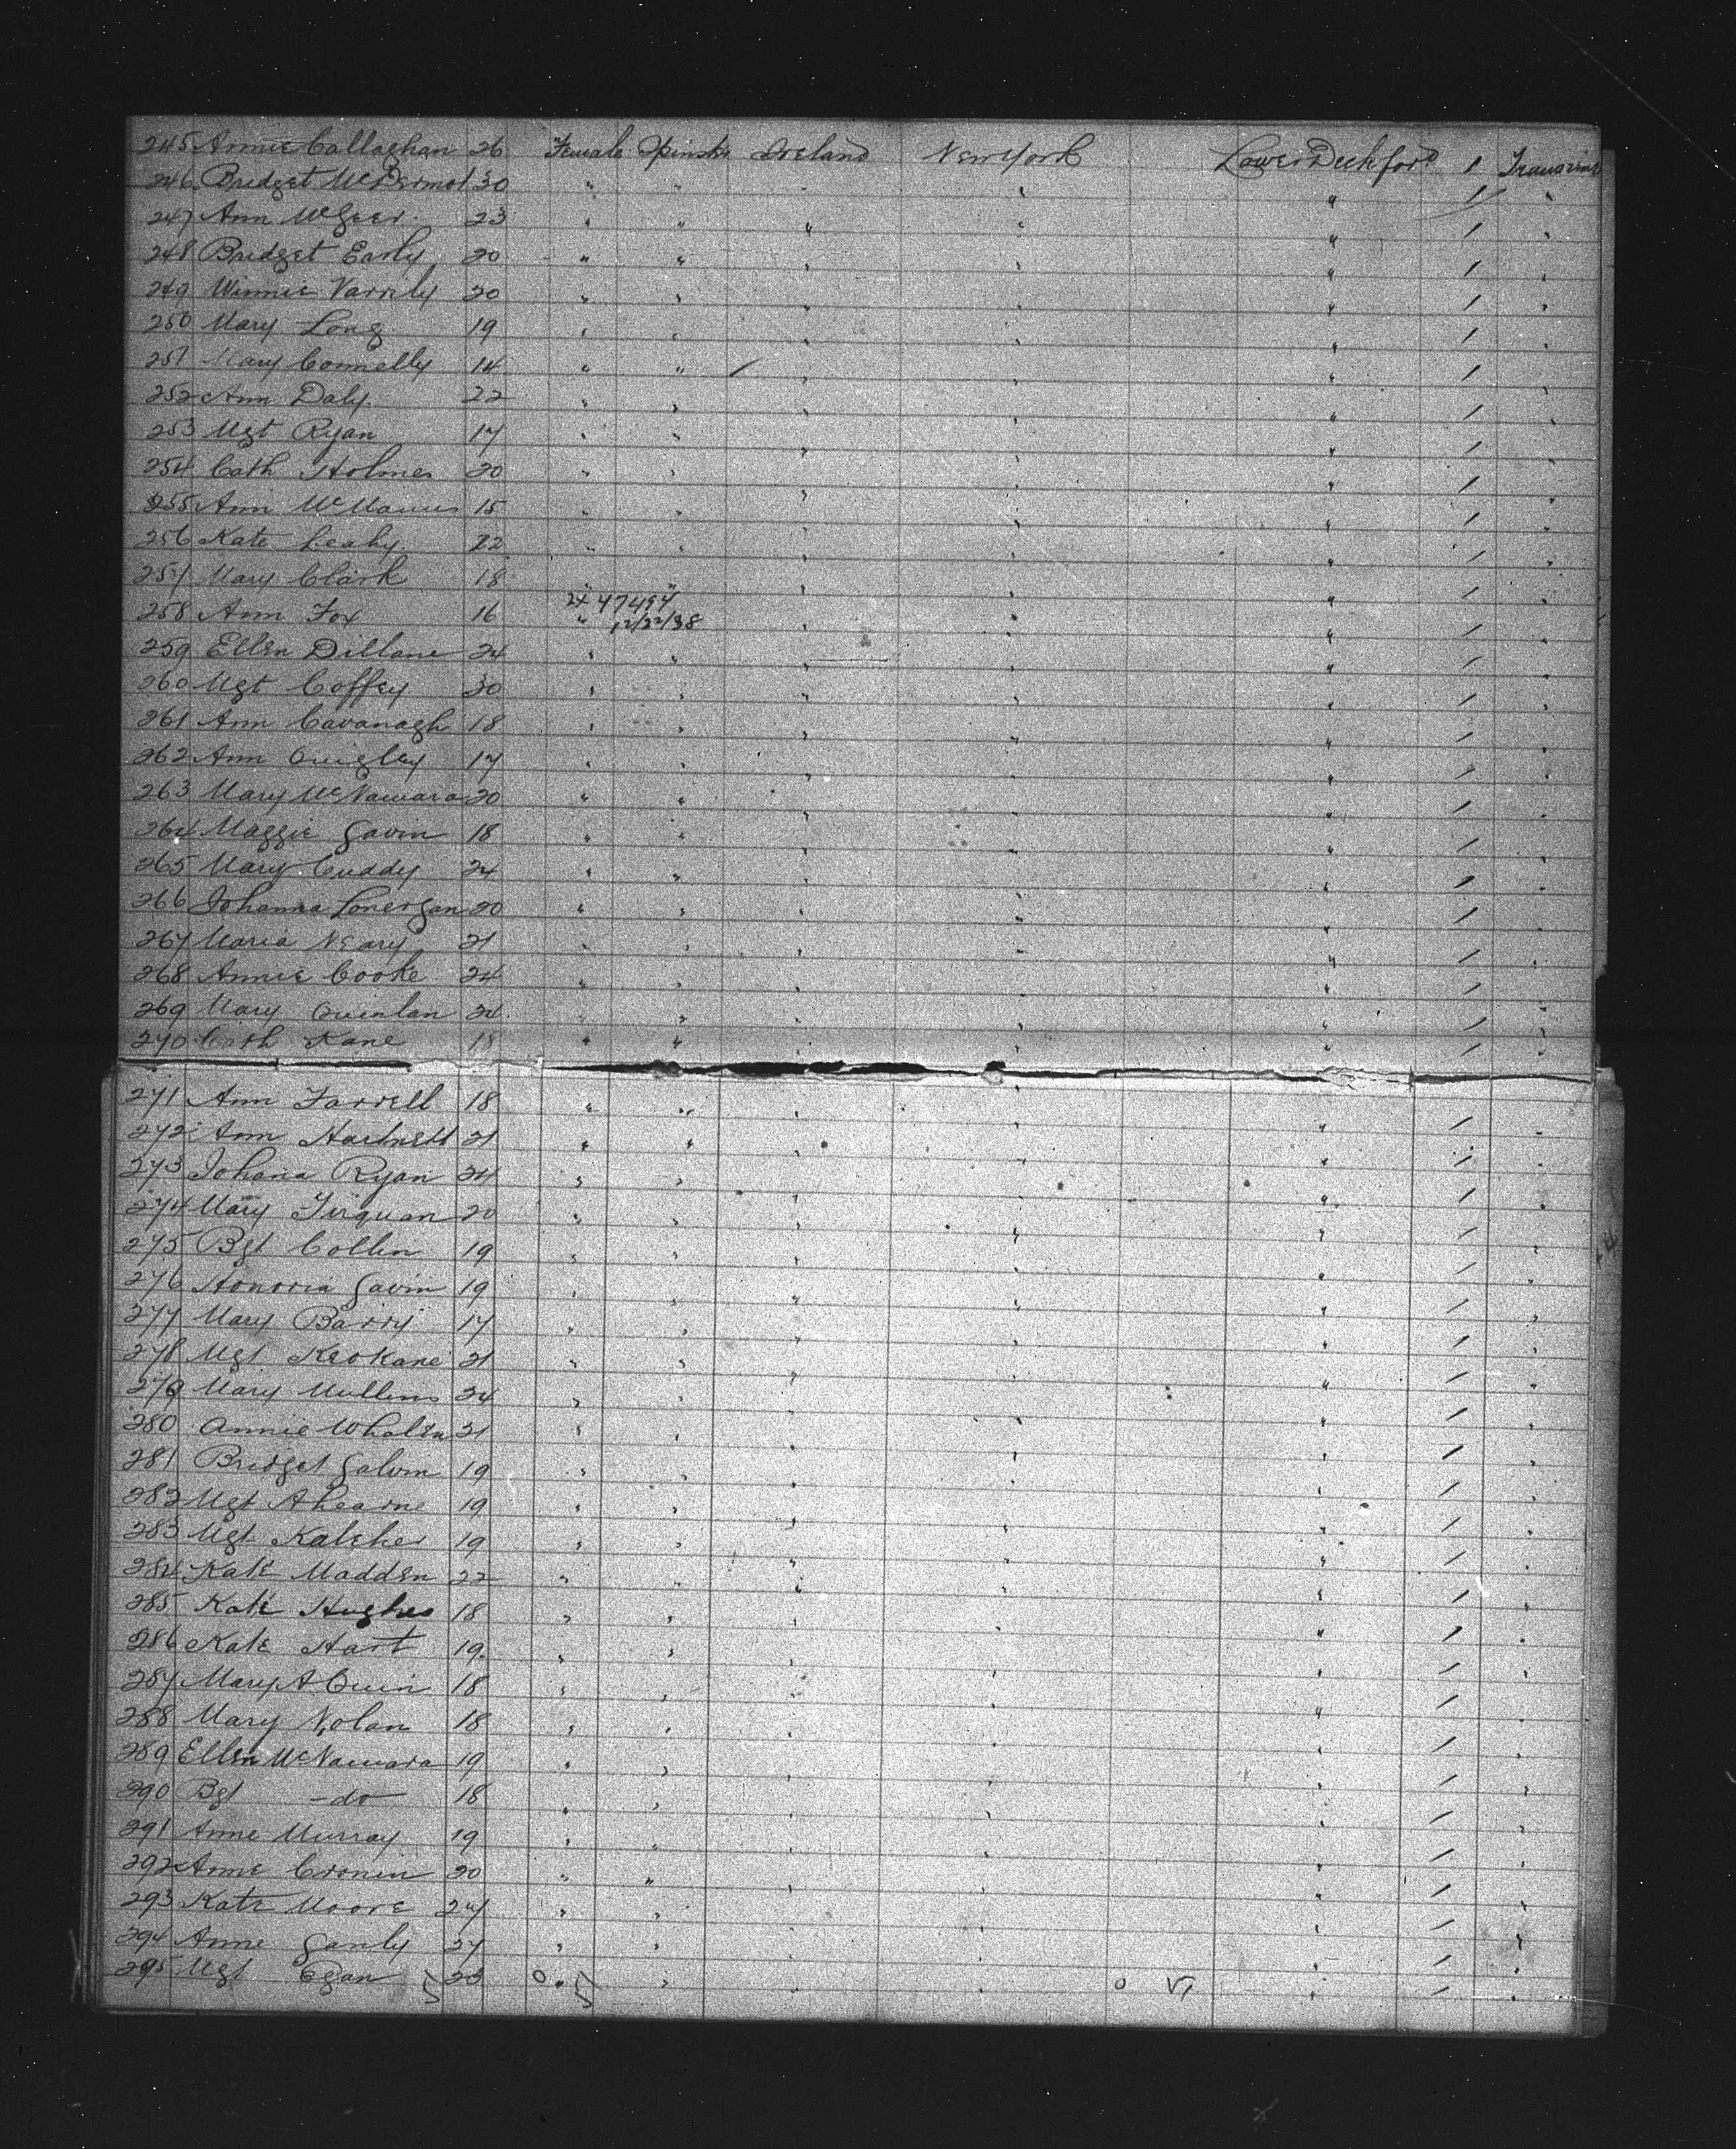 245 Annie Callaghan 26 Female Spinster Ireland New York Lower Deck ford 1
246 Bridget McDermot 30 " " " " " 1 "
247 Ann McGeer 23 " " " " " 1 "
248 Bridget Early 20 " " " " " 1 "
249 Winnie Varrily 20 " " " " " 1 "
250 Mary Long 19 " " " " " 1 "
251 Mary Connelly 14 " " " " " 1 "
252 Ann Daly 22 " " " " " 1 "
253 Mgt Ryan 17 " " " " " 1 "
254 Cath Holmes 20 " " " " " 1 "
255 Ann McManus 15 " " " " " 1 "
256 Kate Leahy 22 " " " " " 1 "
257 Mary Clark 18 " " " " " 1 "
258 Ann Fox 16 " 12/22/38 " " " 1 "
259 Ellen Dillane 24 " " " " " 1 "
260 Mgt Coffey 30 " " " " " 1 "
261 Ann Cavanagh 18 " " " " " 1 "
262 Ann Quigley 17 " " " " " 1 "
263 Mary McNamara 20 " " " " " 1 "
264 Maggie Gavin 18 " " " " " 1 "
265 Mary Cuddy 24 " " " " " 1 "
266 Johanna Lonergan 20 " " " " " 1 "
267 Maria Neary 21 " " " " " 1 "
268 Annie Cooke 24 " " " " " 1 "
269 Mary Quinlan 24 " " " " " 1 "
270 Cath Kane 18 " " " " " 1 "
271 Ann Farrell 18 " " " " " 1 "
272 Ann Hartnett 21 " " " " " 1 "
273 Johana Ryan 24 " " " " " 1 "
274 Mary Finquan 20 " " " " " 1 "
275 Bgt Collin 19 " " " " " 1 "
276 Honoria Gavin 19 " " " " " 1 "
277 Mary Barry 17 " " " " " 1 "
278 Mgt Keokane 21 " " " " " 1 "
279 Mary Mullins 24 " " " " " 1 "
280 Annie Whalen 21 " " " " " 1 "
281 Bridget Galvin 19 " " " " " 1 "
282 Mgt Ahearne 19 " " " " " 1 "
283 Mgt Kaleher 19 " " " " " 1 "
284 Kate Madden 22 " " " " " 1 "
285 Kate Hughes 18 " " " " " 1 "
286 Kate Hart 19 " " " " " 1 "
287 Mary A Quin 18 " " " " " 1 "
288 Mary Nolan 18 " " " " " 1 "
289 Ellen McNamara 19 " " " " " 1 "
290 Bgt -do- 18 " " " " " 1 "
291 Anne Murray 19 " " " " " 1 "
292 Anne Cronin 20 " " " " " 1 "
293 Kate Moore 24 " " " " " 1 "
294 Anne Ganly 27 " " " " " 1 "
295 Mgt Egan 23 " " " " " 1 "